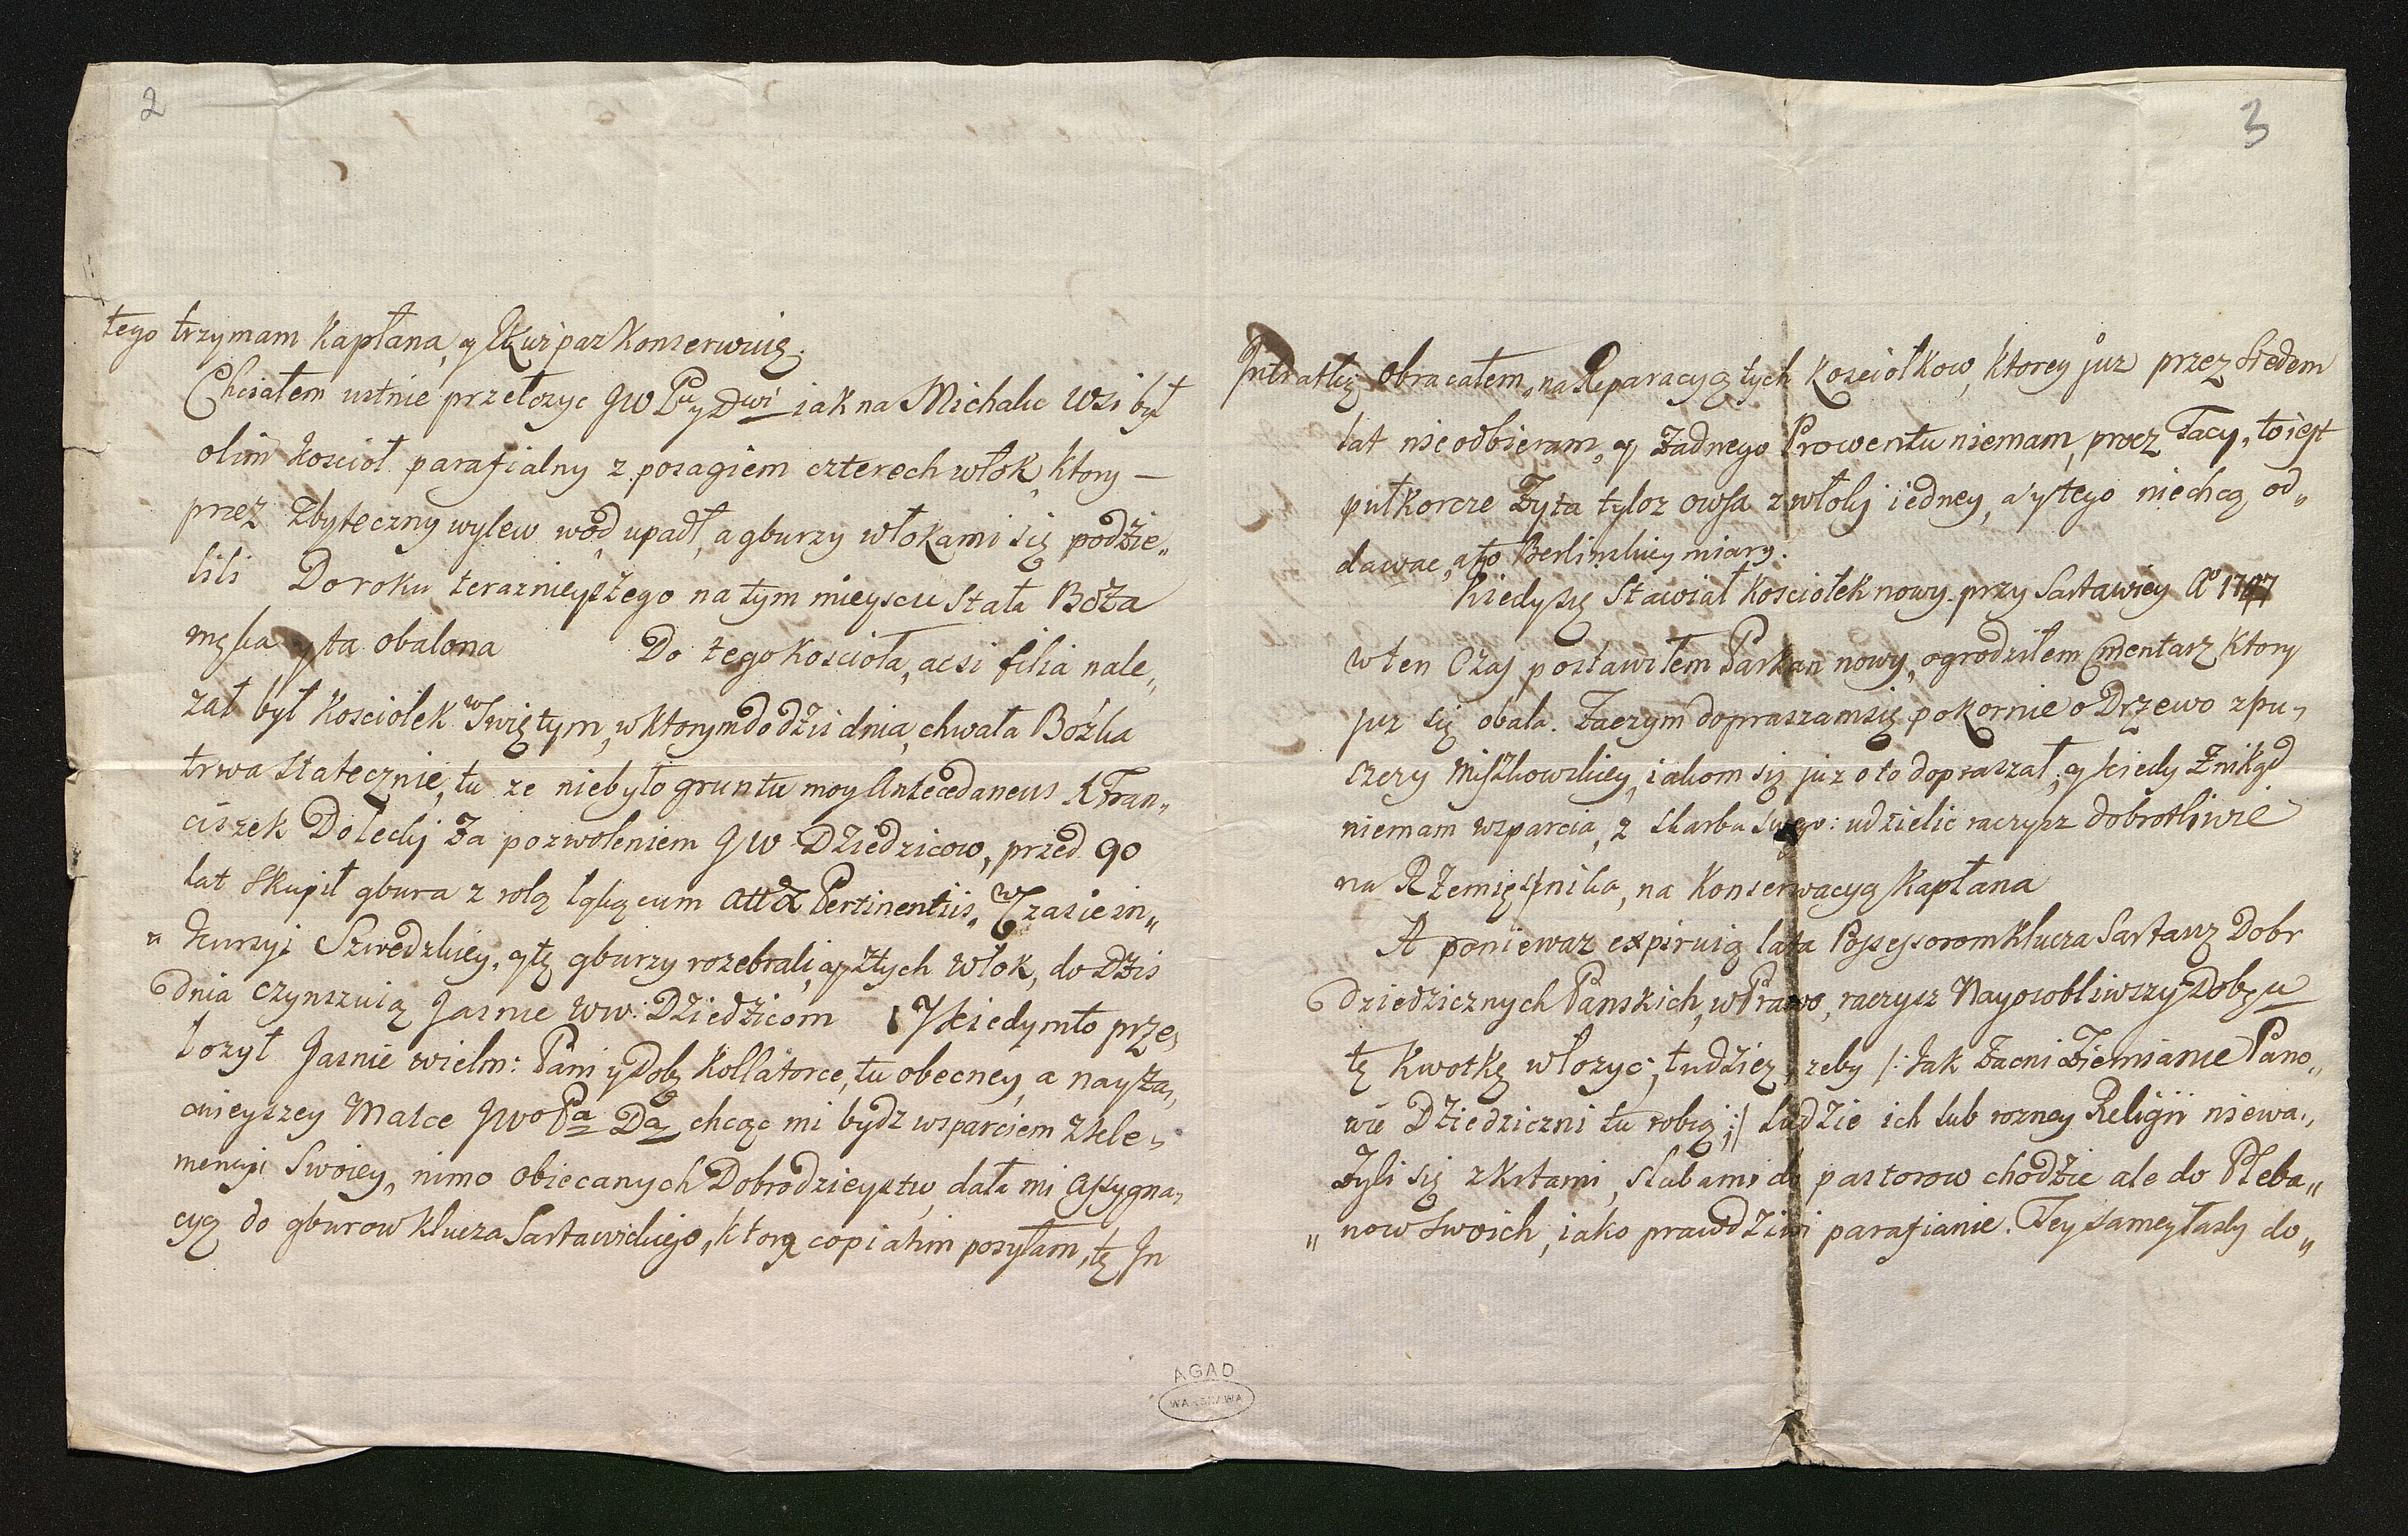 2
tego trzymam kapłana, y Ekwipaz konserwuię.
Chciałem ustnie przełozyc JW Pu y Dwi iak na Michale wsi był
olim koscioł parafialny z posagiem czterech włok, ktory —
przez zbyteczny wylew wod, upadł, a gburzy włokami się podzie„
lili Do roku teraznieyszego na tym mieyscu stała Boża
męka y ta obalona Do tego koscioła, ac si filia nale„
zał był kosciołek w Swiętym, w ktorym do dzis dnia, chwała Bozka
trwa statecznie, tu ze niebyło gruntu moy Antecedaneus X Fran„
ciszek Dolecki za pozwoleniem JW Dziedzicow, przed 90
lat skupił gbura z rolą łąką cum att & Pertinentiis. W czasie in„
„ kursyi Szwedzkiey, y tę gburzy rozebrali, y z tych włok, do dzis
dnia czynszuią Jasnie ww: Dziedzicom Y kiedym to prze„
łozył Jasnie wielm: Pani y Dobz kollatorce, tu obecney, a nayza„
cnieyszey Matce JWo Pa Da chcąc mi bydz wsparciem z kle„
mencyi swoiey, nimo obiecanych Dobrodzieystw, dała mi Assygna„
cyą do gburow klucza Sartawickiego, ktorą copiatim posyłam, tę In
AGAD
WARSZAWA
3
Intratkę obracałem, na Reparacyą tych kosciołkow, ktorey juz przez siedem
lat nieodbieram, y zadnego Prowentu niemam, procz Tacy, to iest
pułkorcze żyta tyloz owsa z włoki iedney, a y tego niechcą od„
dawac, a to Berlinskiey miary.
Kiedy się stawiał kosciołek nowy przy Sartawicy Ao
w ten czas postawiłem Parkan nowy, ogrodziłem Cmentarz ktory
juz się obala. Zaczym dopraszam się pokornie o Drzewo z pu„
szczy Miszkowskiey, iakom się juz o to dopraszał, y kiedy znikąd
niemam wsparcia, z skarbu swego: udzielic raczysz dobrotliwie
na Rzemięslnika, na konserwacyą kapłana
A poniewaz expiruią lata Possessorom klucza Sartawz Dobr
dziedzicznych Panskich, w Prawo, raczysz Nayosobliwszy Dobzu
tę kwotkę włozyc, tudziez zeby /: Jak zacni Ziemianie Pano„
wie Dziedziczni tu robią :/ ludzie ich lub rozney Religii niewa„
zyli się z krztami, slubami do pastorow chodzic ale do Pleba„
„ now swoich, iako prawdziwi parafianie. Tey samey łaski do„